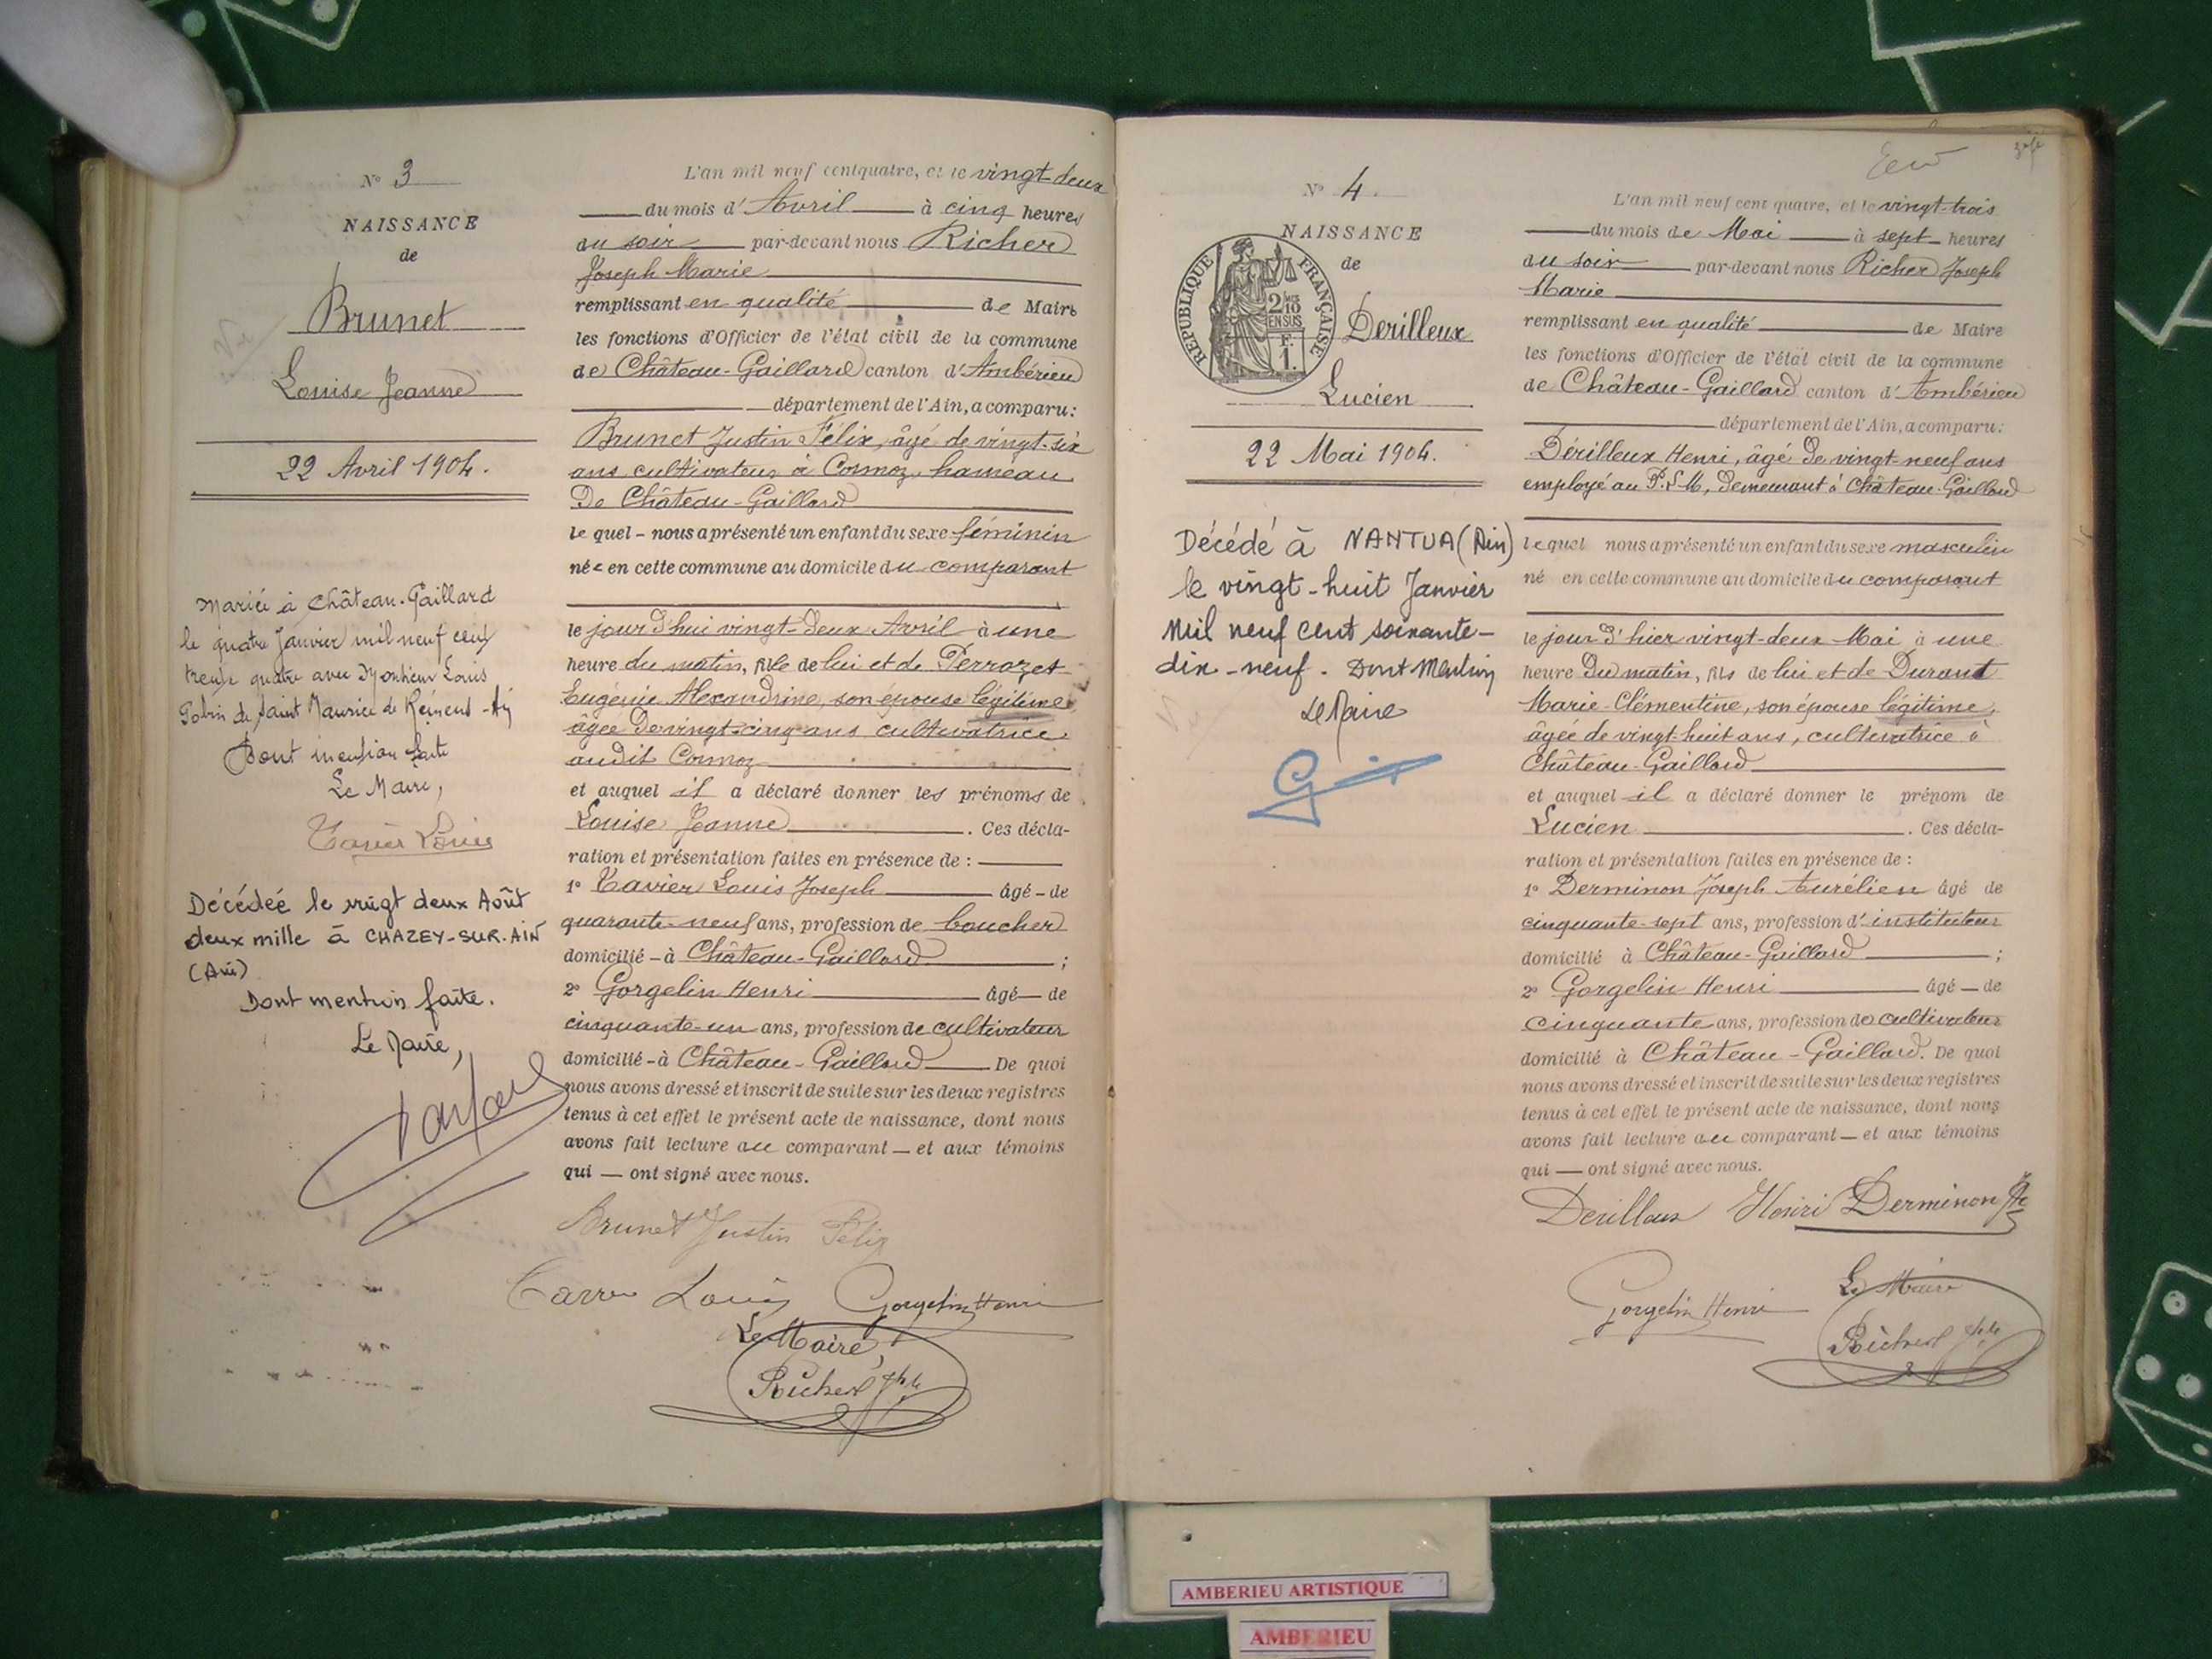 N° 3
NAISSANCE
de
Brunet
Louise Jeanne
22 Avril 1904.
Mariée à Château-Gaillard
le quatre Janvier mil neuf cent
trente quatre avec Monsieur Louis
de Saint Maurice de
Dont mention faite
Le Maire,
Tavier Louis
Décédée le vingt deux Août
deux mille à CHAZEY-SUR-AIN
(Ain)
Dont mention faite.
Le Maire,
L'an mil neuf cent quatre, et le vingt-deux
du mois d'Avril à cinq heures
du soir par-devant nous Richerd
Joseph Marie
remplissant en qualité de Maire
les fonctions d'Officier de l'état civil de la commune
de Château-Gaillard canton d'Ambérieu
département de l'Ain, a comparu :
Brunet Justin Félix, âgé de vingt-six
ans cultivateur à Cormoz, hameau
De Château-Gaillard
le quel - nous a présenté un enfant du sexe féminin
née en cette commune au domicile du comparant
le jour d'hui vingt-deux Avril à une
heure du matin, fille de lui et de Perrozet
Eugénie Alexandrine, son épouse légitime,
âgée de vingt-cinq ans cultivatrice
audit Cormoz
et auquel il a déclaré donner les prénoms de
Louise Jeanne . Ces décla-
ration et présentation faites en présence de :
1° Tavier Louis Joseph âgé - de
quarante-neuf ans, profession de boucher
domicilié - à Château-Gaillard ;
2° Gorgelin Henri âgé — de
cinquante-un ans, profession de cultivateur
domicilié - à Château-Gaillard De quoi
nous avons dressé et inscrit de suite sur les deux registres
tenus à cet effet le présent acte de naissance, dont nous
avons fait lecture au comparant — et aux témoins
qui — ont signé avec nous.
Brunet Justin Félix
Louis Gorgelin Henri
Le Maire,
Richerd Jph
N° 4.
NAISSANCE
de
REPUBLIQUE FRANÇAISE
2/10
EN SUS
F.
1.
Derilleux
Lucien
22 Mai 1904.
Décédé à NANTUA (Ain)
le vingt-huit Janvier
Mil neuf cent soixante-
dix-neuf. Dont Mention
Le Maire
L'an mil neuf cent quatre, et le vingt-trois
du mois de Mai à sept heures
du soir par-devant nous Richerd Joseph
Marie
remplissant en qualité de Maire
les fonctions d'Officier de l'état civil de la commune
de Château-Gaillard canton d'Ambérieu
département de l'Ain, a comparu :
Dérilleux Henri, âgé de vingt-neuf ans
employé au P.L.M, demeurant à Château-Gaillard
lequel nous a présenté un enfant du sexe masculin
né en cette commune au domicile du comparant
le jour d'hier vingt-deux Mai à une
heure du matin, fils de lui et de Durant
Marie-Clémentine, son épouse légitime,
âgée de vingt-huit ans, cultivatrice à
Château-Gaillard
et auquel il a déclaré donner le prénom de
Lucien . Ces décla-
ration et présentation faites en présence de :
1° Derminon Joseph Aurélien âgé de
cinquante-sept ans, profession d'instituteur
domicilié à Château-Gaillard ;
2° Gorgelin Henri âgé — de
cinquante ans, profession de cultivateur
domicilié à Château-Gaillard. De quoi
nous avons dressé et inscrit de suite sur les deux registres
tenus à cet effet le présent acte de naissance, dont nous
avons fait lecture au comparant — et aux témoins
qui — ont signé avec nous.
Derilleux Henri Derminon
Gorgelin Henri
Le Maire
Richerd Jph
AMBERIEU ARTISTIQUE
AMBERIEU